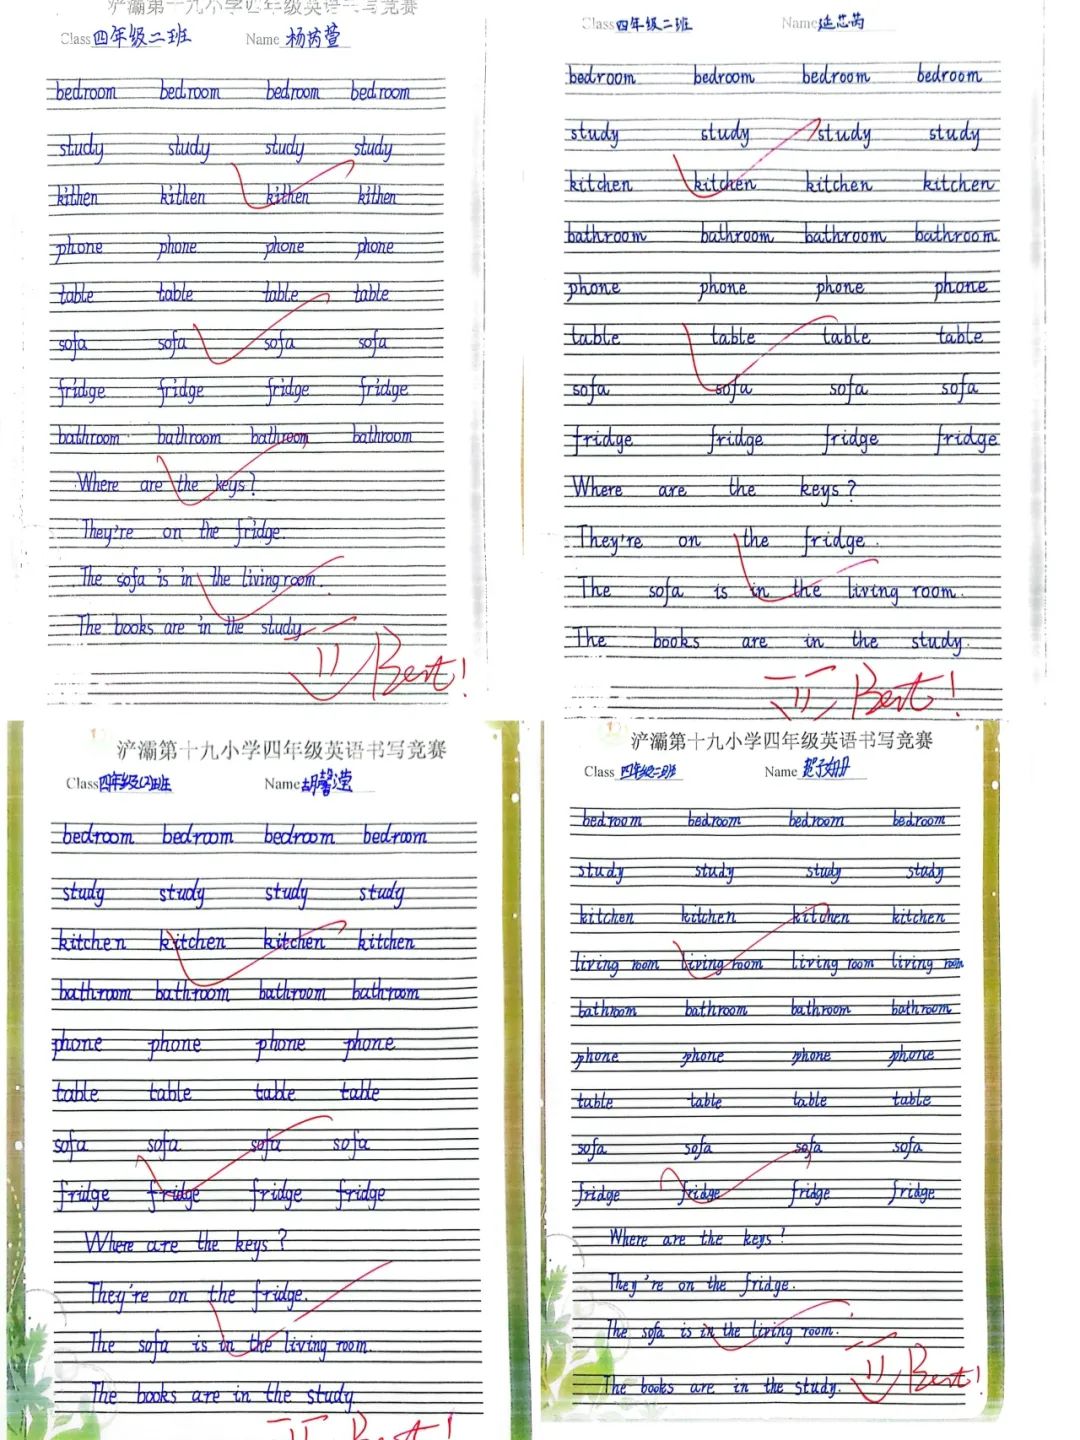 浐灞第十九小学四年级英语书写竞赛
Class 四年级二班 Name 杨芮萱
bedroom bedroom bedroom bedroom
study study study study
kithen kithen kithen kithen
phone phone phone phone
table table table table
sofa sofa sofa sofa
fridge fridge fridge fridge
bathroom bathroom bathroom bathroom
Where are the keys?
They're on the fridge.
The sofa is in the living room.
The books are in the study
Best!
Class 四年级二班 Name 延芯芮
bedroom bedroom bedroom bedroom
study study study study
kitchen kitchen kitchen kitchen
bathroom bathroom bathroom bathroom
phone phone phone phone
table table table table
sofa sofa sofa sofa
fridge fridge fridge fridge
Where are the keys?
They're on the fridge.
The sofa is in the living room.
The books are in the study.
Best!
浐灞第十九小学四年级英语书写竞赛
Class 四年级(2)班 Name 胡馨滢
bedroom bedroom bedroom bedroom
study study study study
kitchen kitchen kitchen kitchen
bathroom bathroom bathroom bathroom
phone phone phone phone
table table table table
sofa sofa sofa sofa
fridge fridge fridge fridge
Where are the keys?
They're on the fridge.
The sofa is in the living room.
The books are in the study.
浐灞第十九小学四年级英语书写竞赛
Class 四年级二班 Name
bedroom bedroom bedroom bedroom
study study study study
kitchen kitchen kitchen kitchen
living room living room living room living room
bathroom bathroom bathroom bathroom
phone phone phone phone
table table table table
sofa sofa sofa sofa
fridge fridge fridge fridge
Where are the keys?
They're on the fridge.
The sofa is in the living room.
The books are in the study.
Best!